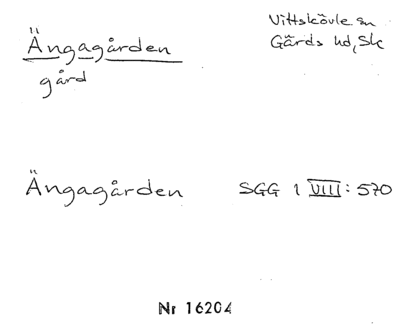 Ängagården
gård
Vittskövle sn
Gärds hd, Sk
Ängagården SGG 1 VIII: 570
Nr 16204